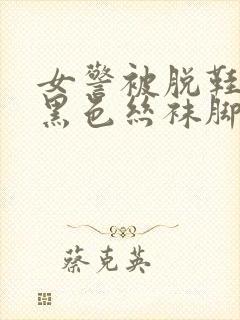 女警被脱鞋
黑色丝袜脚
蔡克英